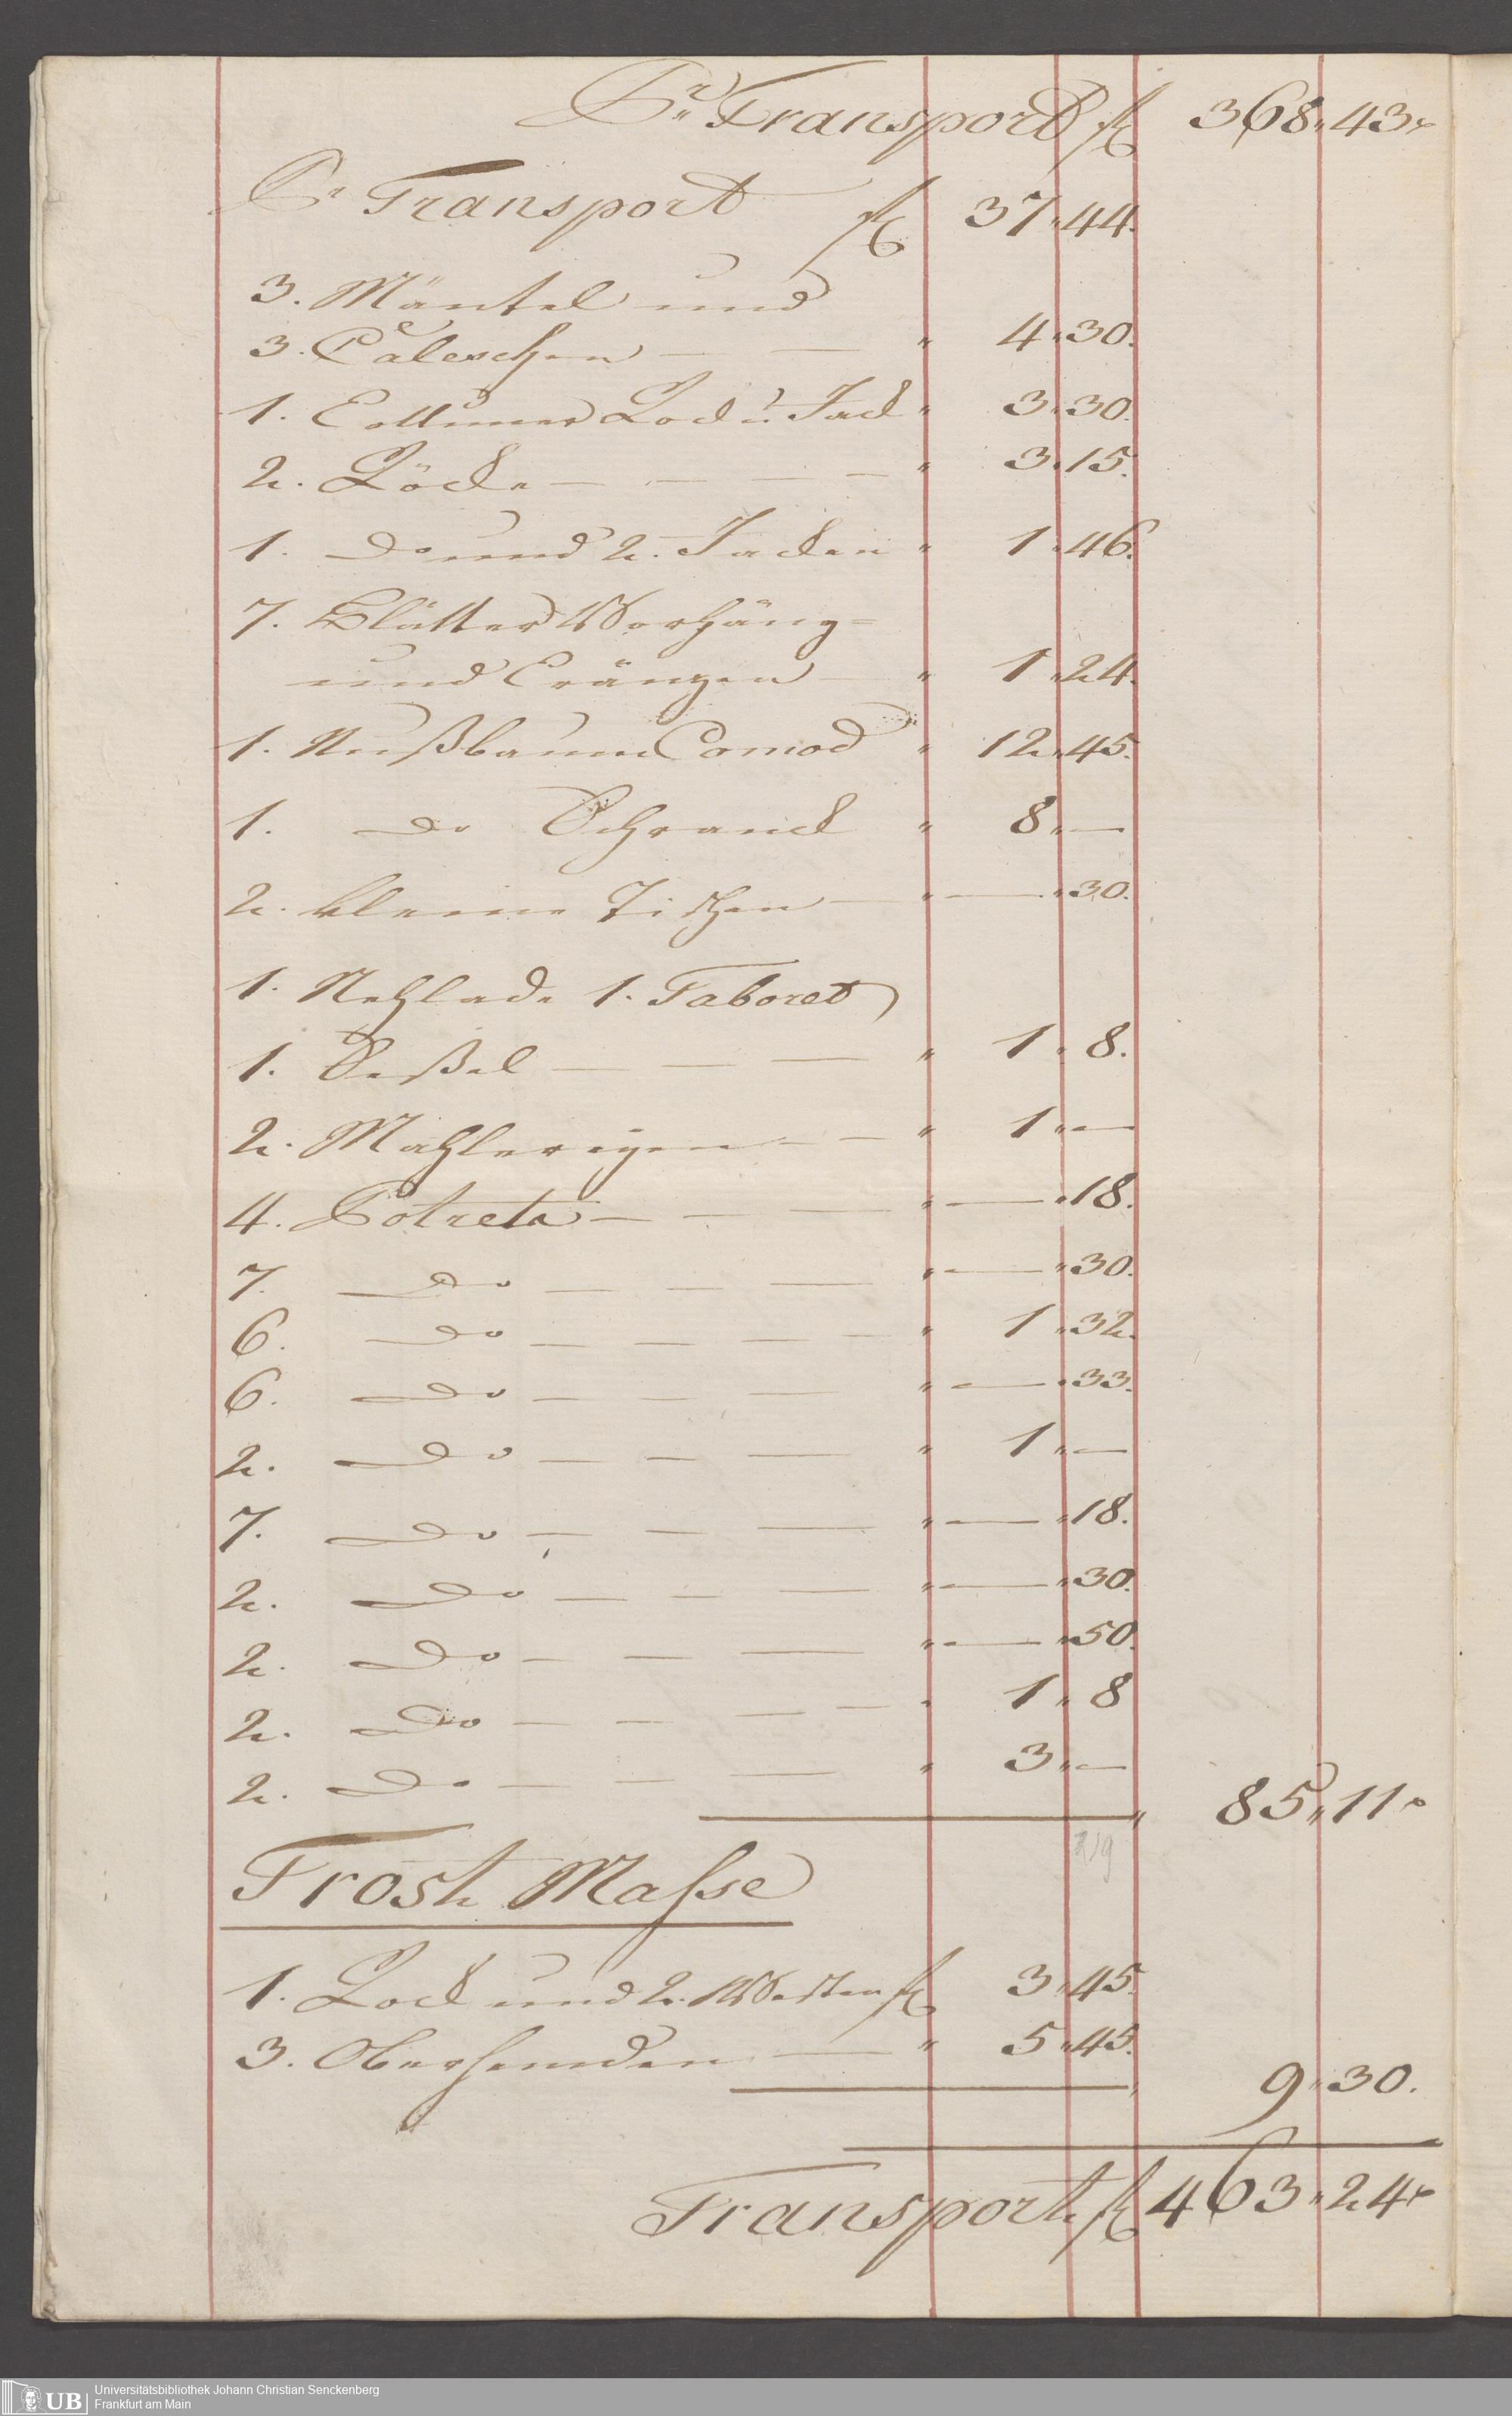 Pr Transport f 368 " 43 x
Pr Transport f 37 " 44.
3. Mäntel und
3. Caleschen — — " 4 " 30.
1. Cattuner Rock u Jack " 3 " 30.
2. Röcke — — — — " 3 " 15.
1. do und 2. Jacken " 1 " 46.
7. Blätter Vorhäng=
und Cränzen — " 1 " 24.
1. Nußbaum Comod " 12 " 45.
1. do Schranck " 8 " —
2. kleine Tischen — " — " 30.
1. Nehlade 1. Taboret
1. Seßel — — — " 1 " 8.
2. Mahlereyen — — " 1 " —
4. Potrete — — — " — " 18.
7. do — — " — " 30.
6. do — — — — " 1 " 32.
6. do — — — " — " 33.
2. do — — — " 1 " —
7. do — — — " — " 18.
2. do — — — " — " 30.
2. do — — — " — " 50.
2. do — — — — " 1 " 8
2. do — — — " 3 " —
" 85 " 11 "
Frosh Masse
1. Rock und 2. Westen f 3 " 45.
3. Oberhemden — " 5 " 45.
" 9 " 30.
Transport f 463 " 24 x
UB
Universitätsbibliothek Johann Christian Senckenberg
Frankfurt am Main